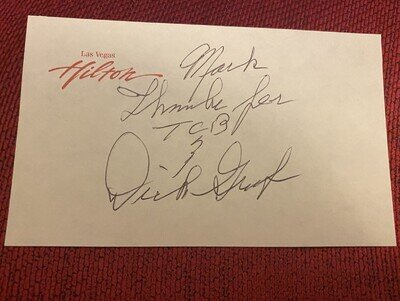 Las Vegas
Hilton
Mark
Thanks for
TCB
Dick Grob